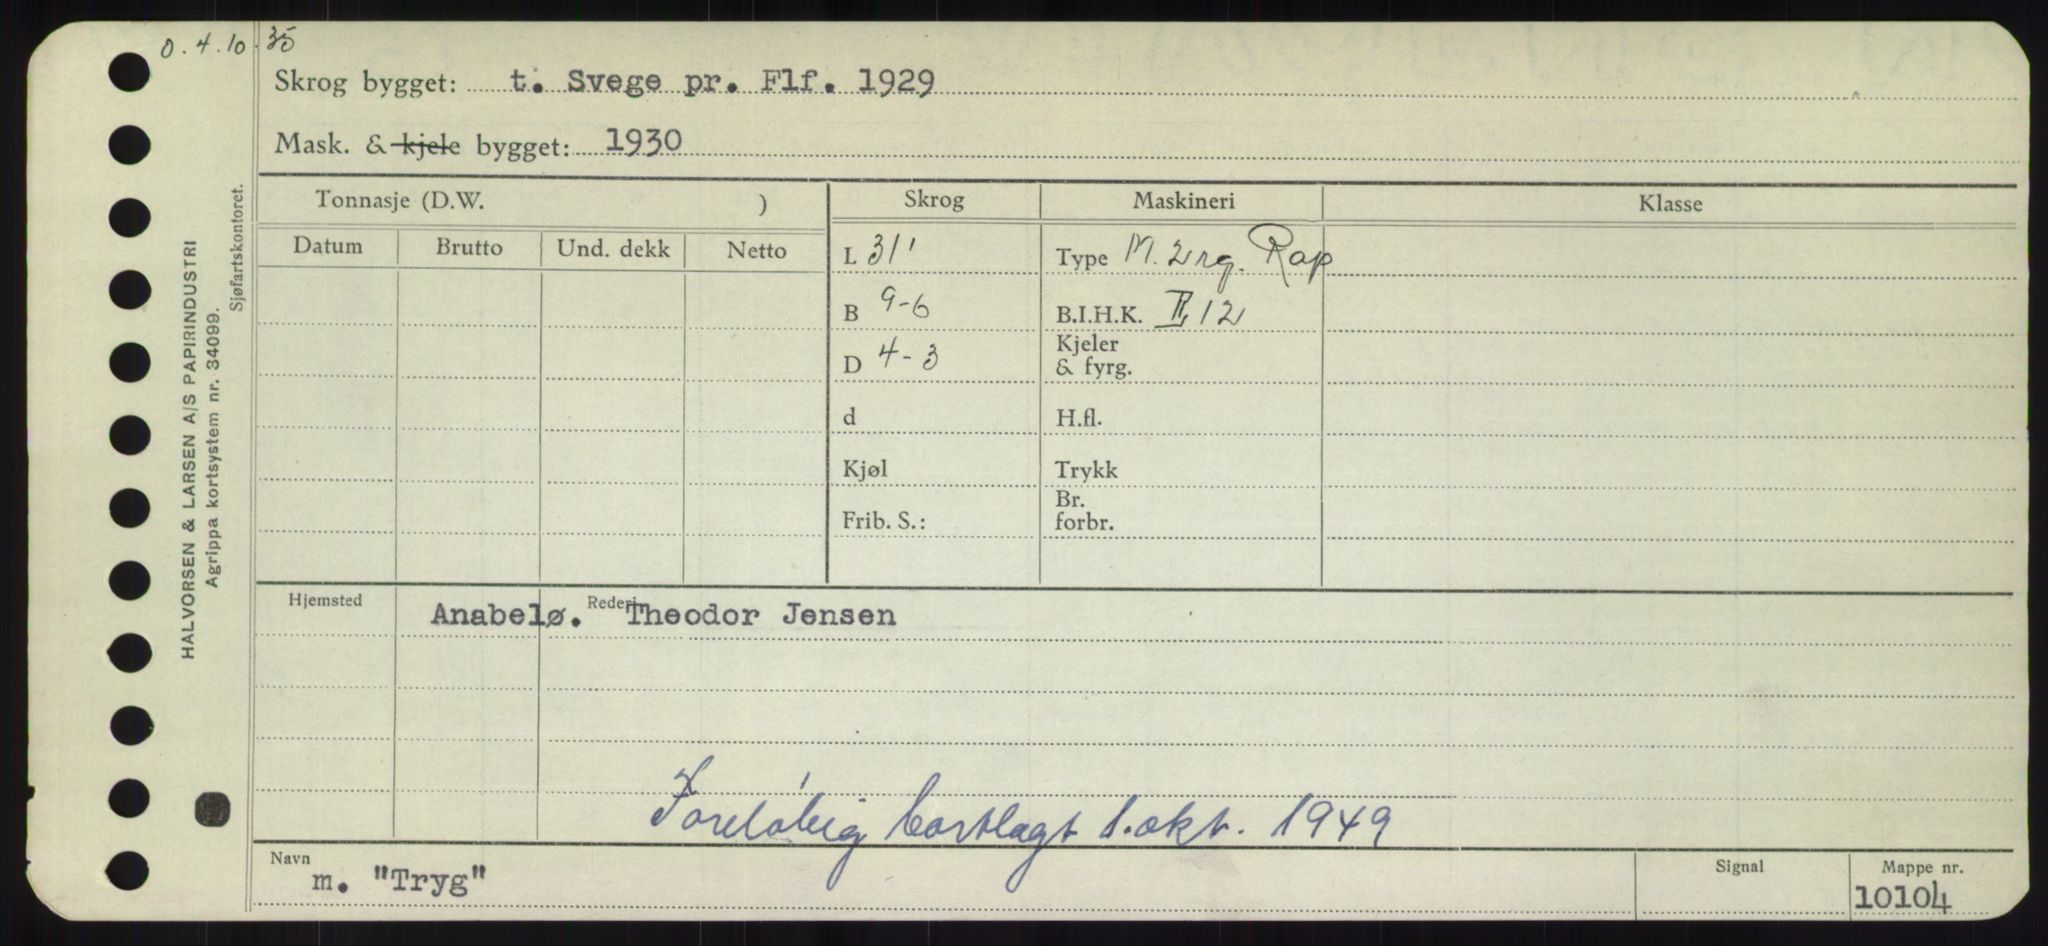 0.4.10.35
Skrog bygget: t. Svege pr. Flf. 1929
Mask. & kjele bygget: 1930
Tonnasje (D.W. ) Skrog Maskineri Klasse
Datum Brutto Und. dekk Netto
L 31' Type M. 2 rg. Rap
B 9-6 B.I.H.K. II, 12
D 4-3 Kjeler & fyrg.
d H.fl.
Kjøl Trykk
Frib. S.: Br. forbr.
Hjemsted Rederi
Anabelø. Theodor Jensen
Foreløbig bortlagt 1. okt. 1949
Navn Signal Mappe nr.
m. "Tryg" 10104
HALVORSEN & LARSEN A/S PAPIRINDUSTRI
Agrippa kortsystem nr. 34099.
Sjøfartskontoret.